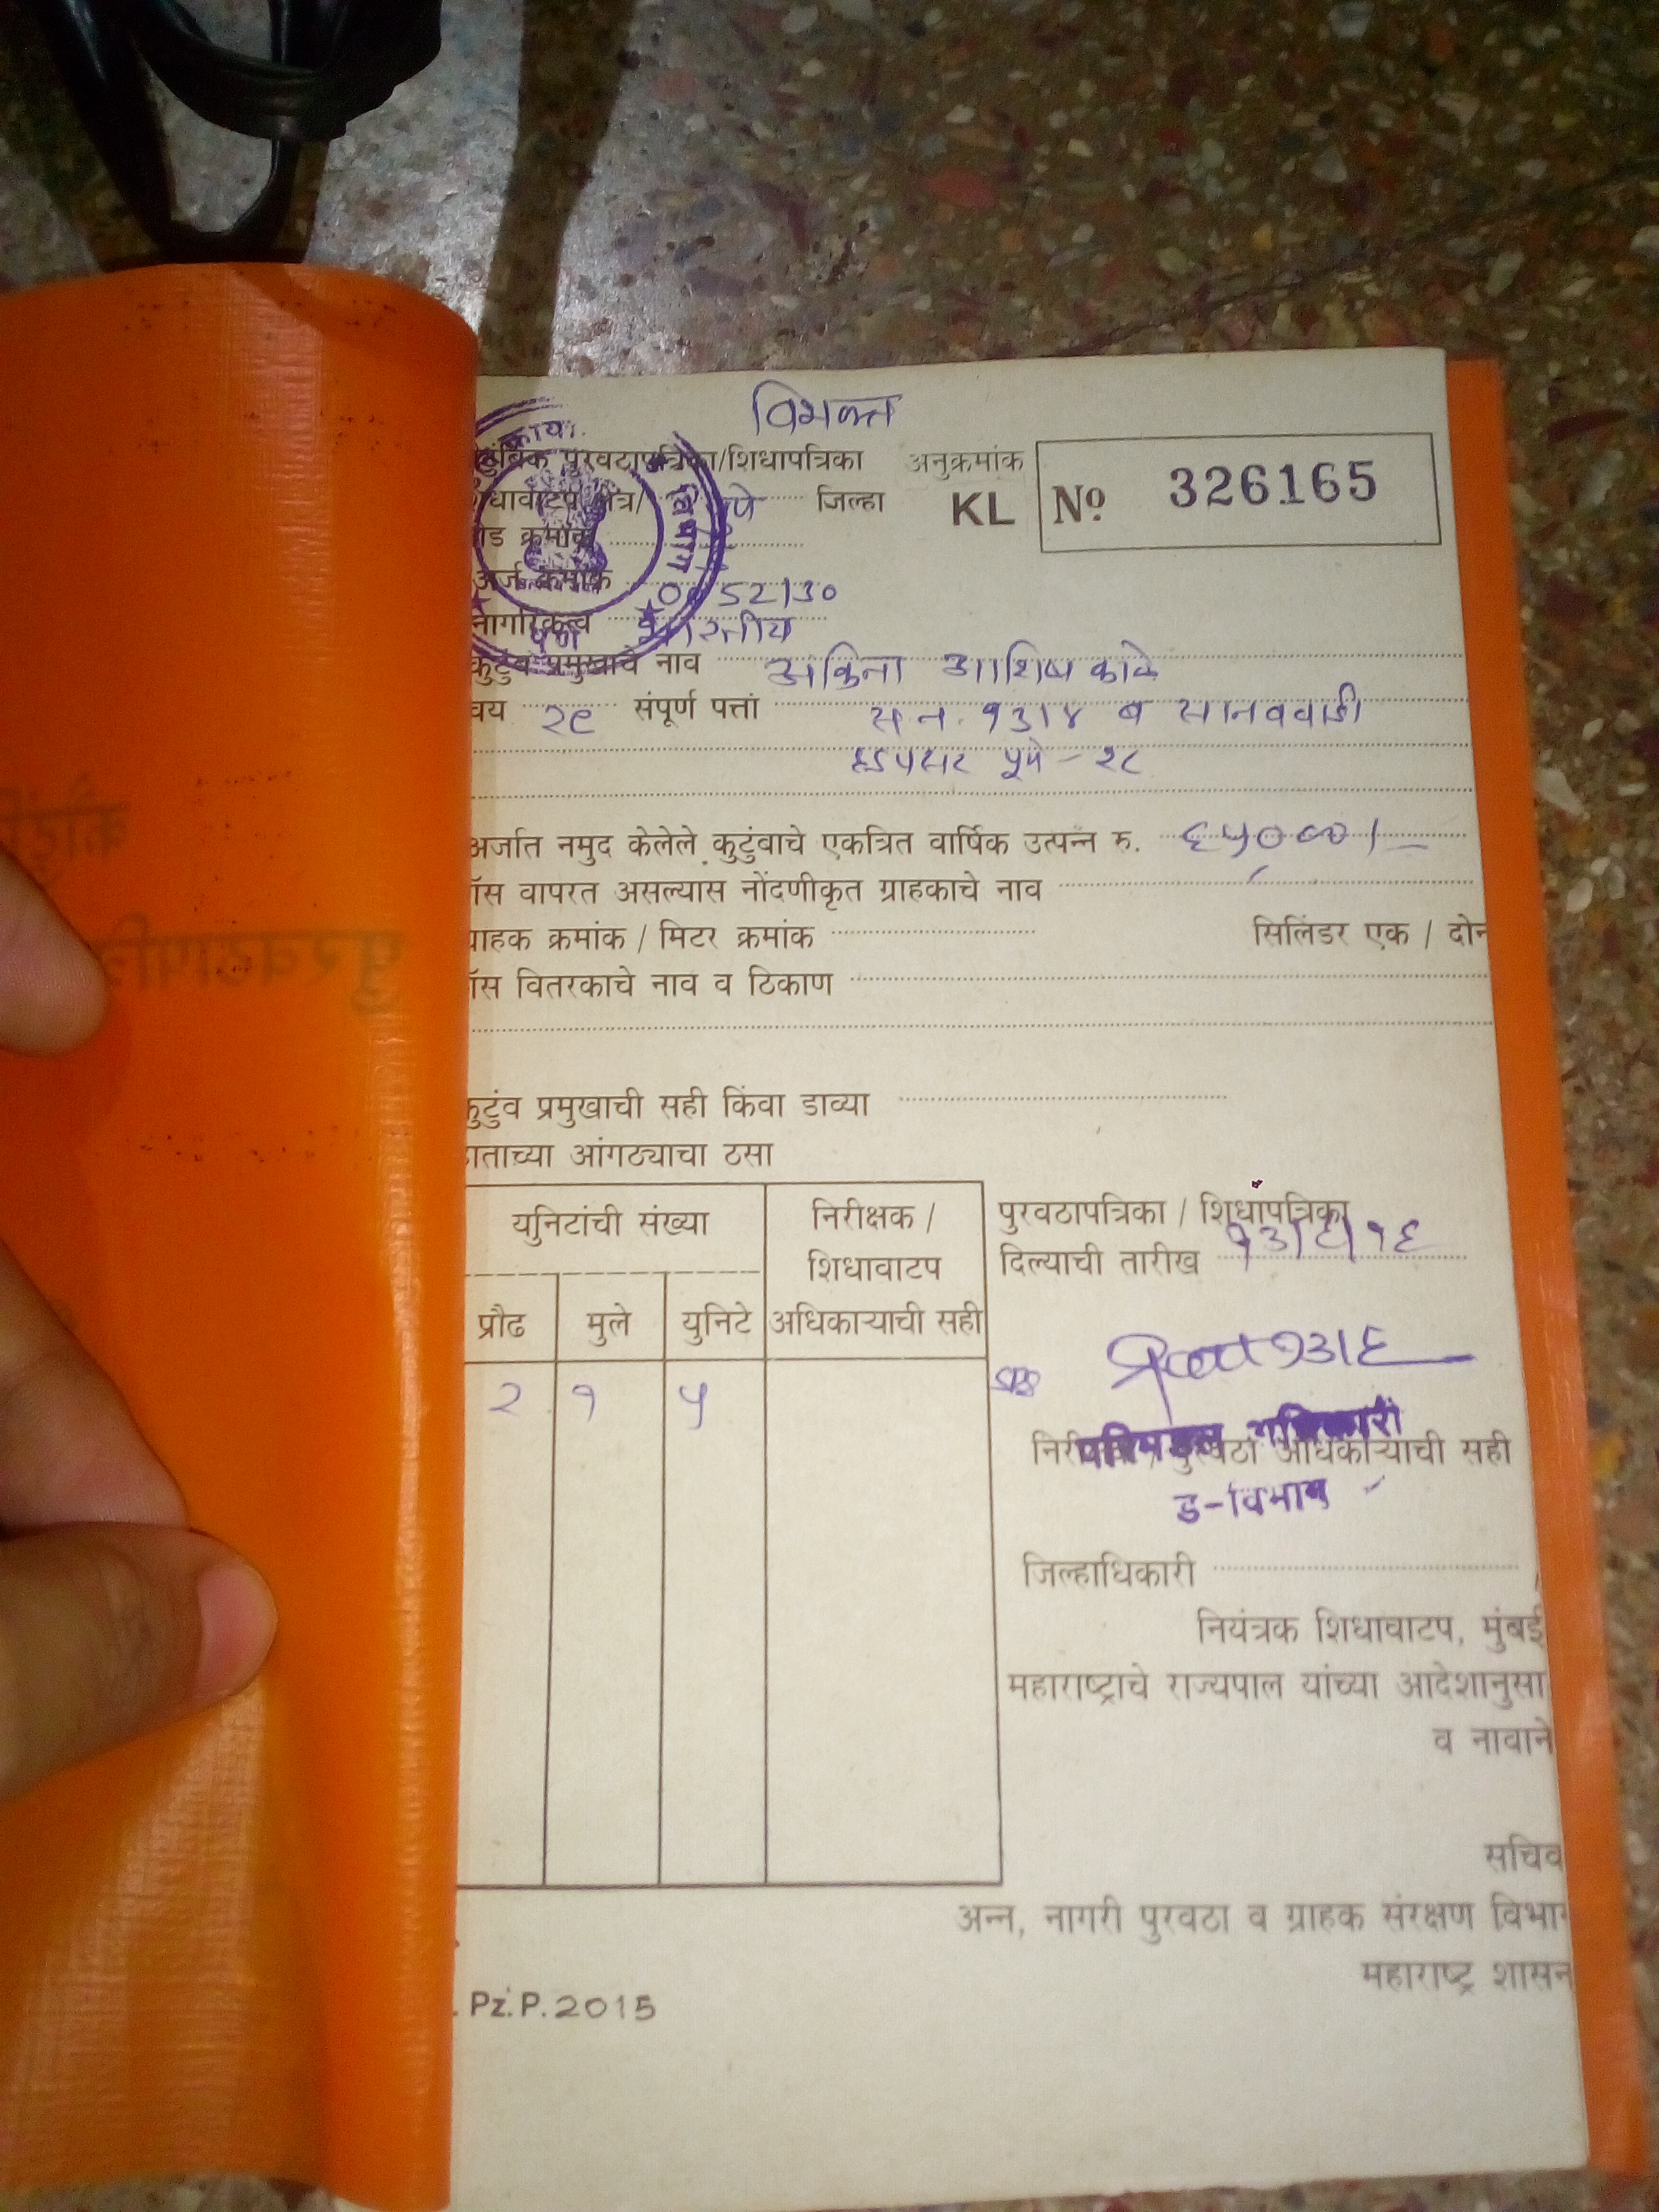 विभक्त
पुरवठापत्रिका/शिधापत्रिका अनुक्रमांक
जिल्हा KL No 326165
क्रमांक
अर्ज क्रमांक
नागरिकत्व भारतीय
कुटुंब प्रमुखाचे नाव आशिष काळे
वय २९ संपूर्ण पत्ता स.न. १३/४ ब
हडपसर पुणे - २८
अर्जात नमुद केलेले कुटुंबाचे एकत्रित वार्षिक उत्पन्न रु. ६५०००/-
वापरत असल्यास नोंदणीकृत ग्राहकाचे नाव
क्रमांक / मिटर क्रमांक सिलिंडर एक / दोन
वितरकाचे नाव व ठिकाण
कुटुंब प्रमुखाची सही किंवा डाव्या
आंगठ्याचा ठसा
युनिटांची संख्या
प्रौढ मुले युनिटे
निरीक्षक /
शिधावाटप
अधिकाऱ्याची सही
२ १ ५
पुरवठापत्रिका / शिधापत्रिका
दिल्याची तारीख
परिमंडळ अधिकारी
पुरवठा अधिकाऱ्याची सही
ड-विभाग
जिल्हाधिकारी
नियंत्रक शिधावाटप, मुंबई
महाराष्ट्राचे राज्यपाल यांच्या आदेशानुसा
व नावाने
सचिव
अन्न, नागरी पुरवठा व ग्राहक संरक्षण विभाग
महाराष्ट्र शासन
Pz.P.2015